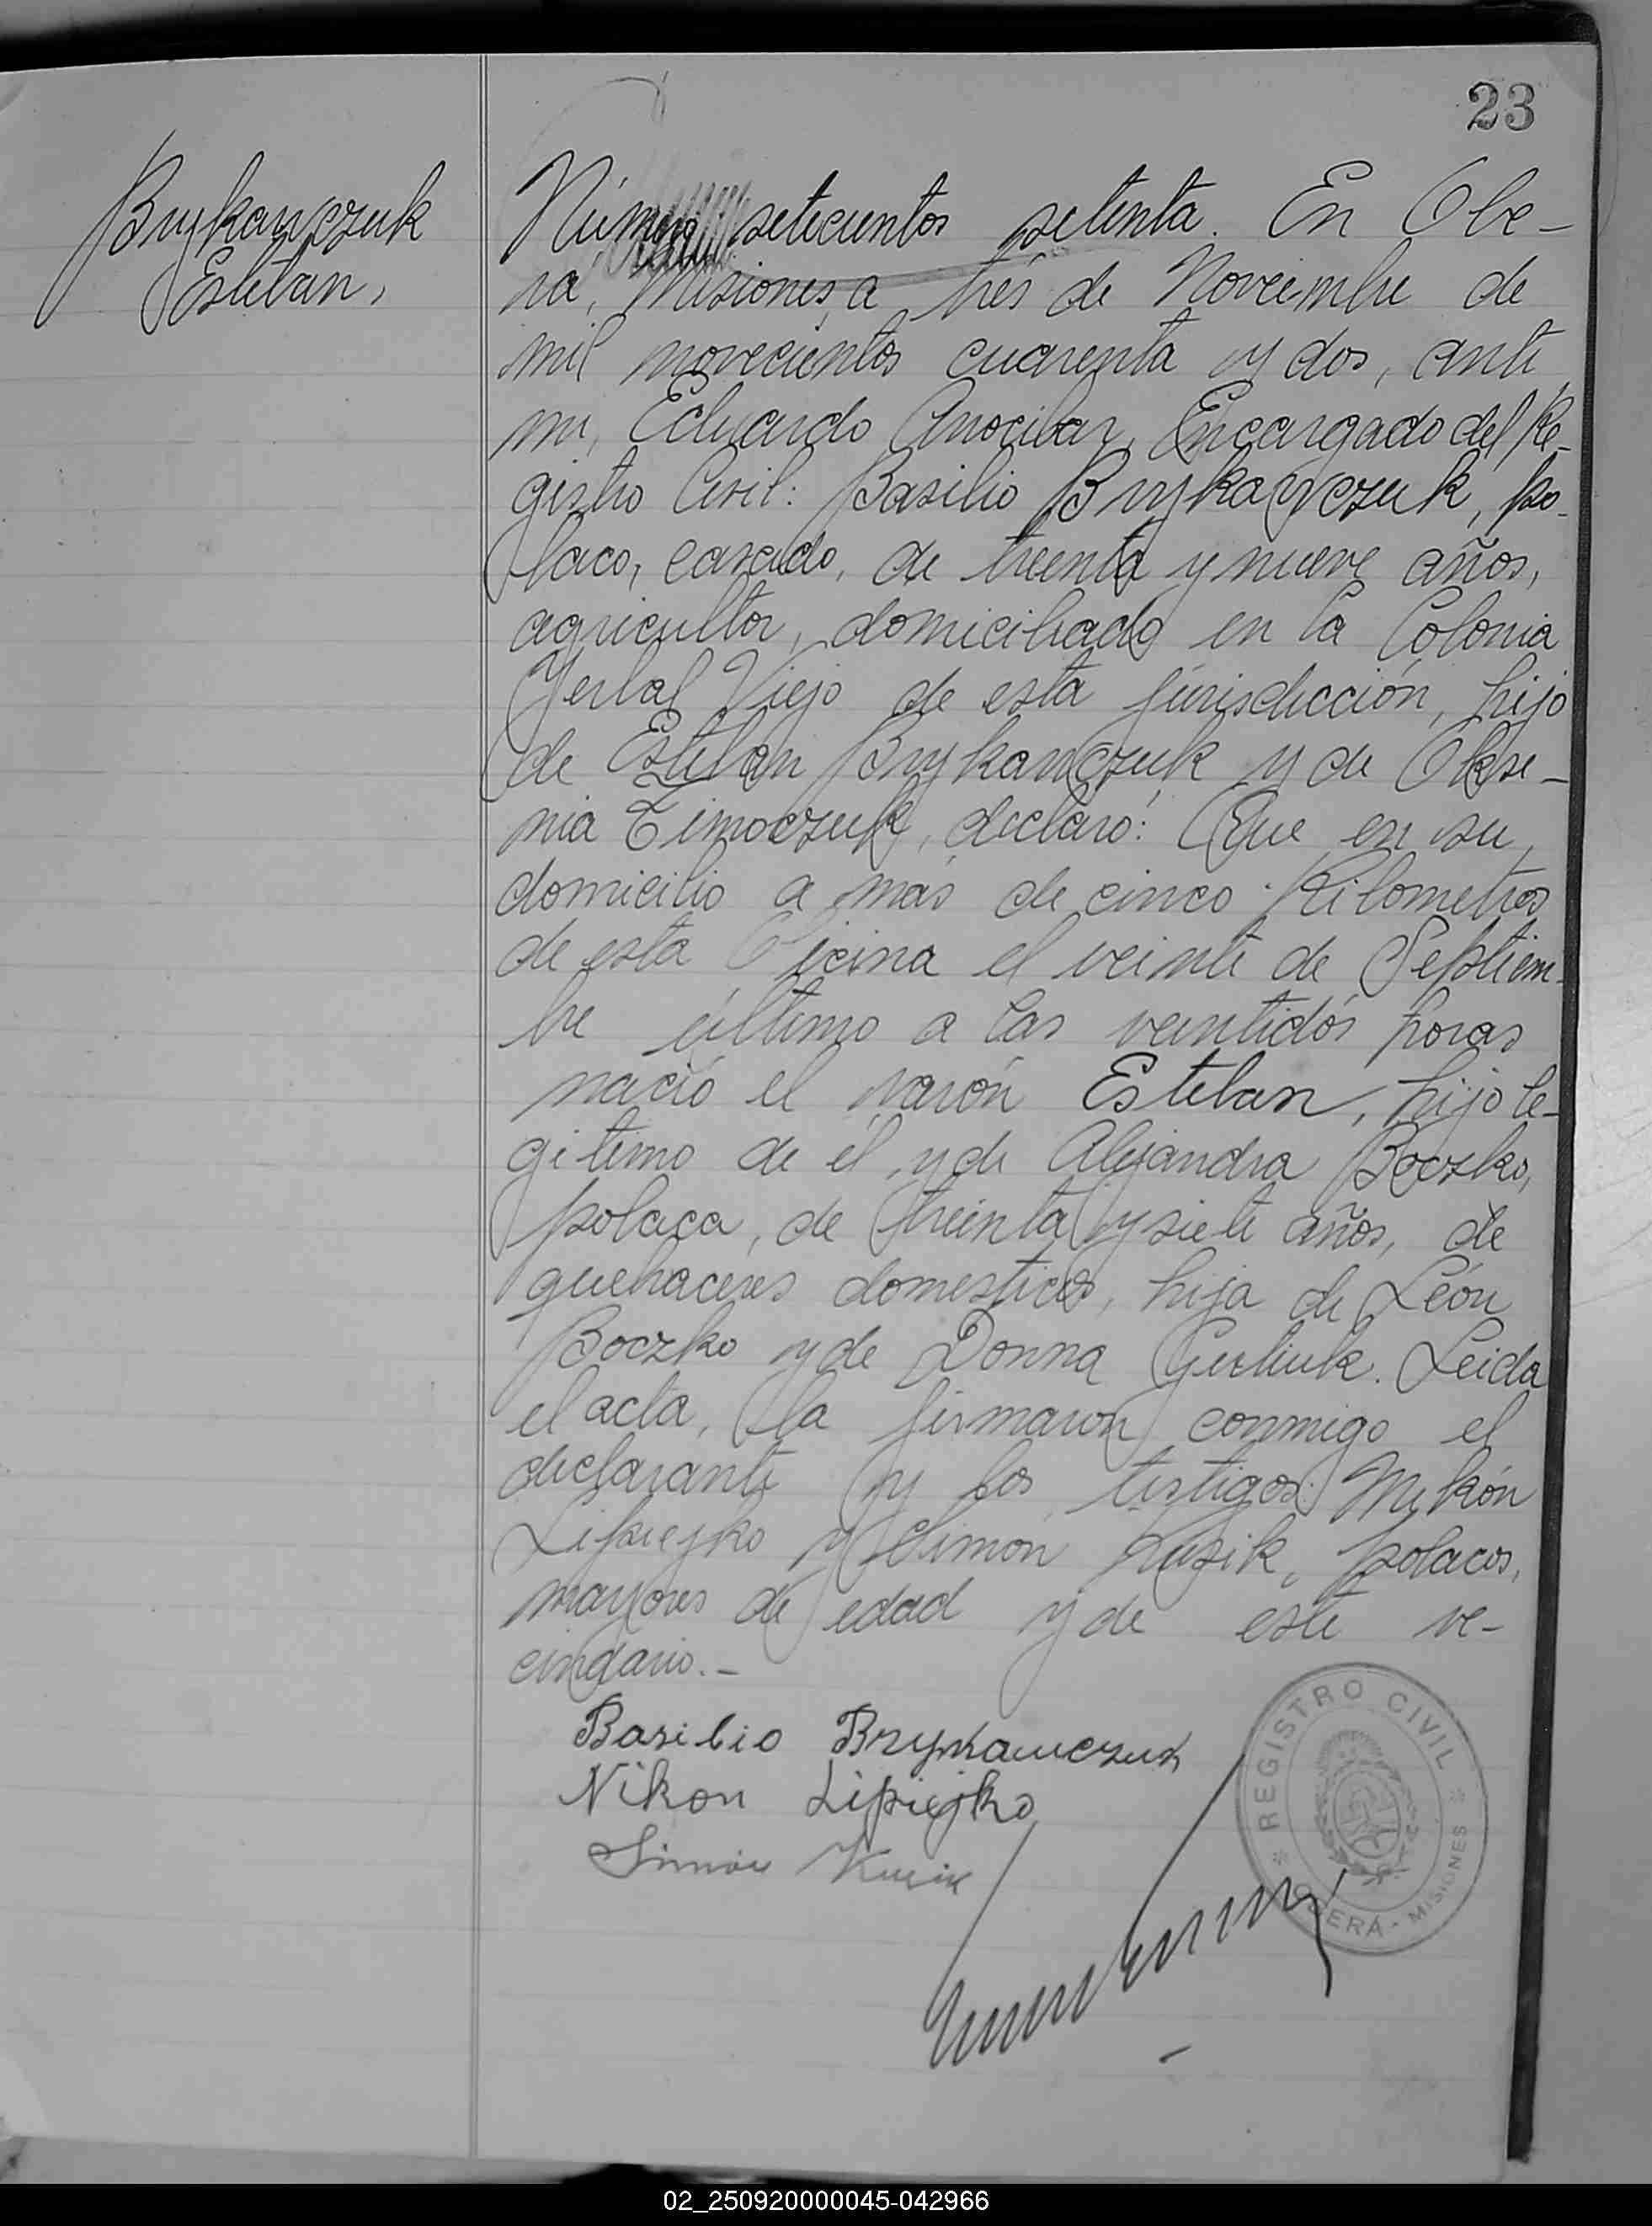 23
Brykawczuk
Esteban,
Número setecientos setenta. En Obe-
ra, Misiones, a trés de Noviembre de
mil novecientos cuarenta y dos, ante
mi, Eduardo Anocibar, Encargado del Re-
gistro Civil: Basilio Brykawczuk, po-
laco, casado, de treenta y nueve años,
agricultor, domiciliado en la Colonia
Yerbal Viejo de esta jurisdicción, hijo
de Esteban Brykawczuk y de Okse-
nia Timoczuk, declaró: Que en su
domicilio a más de cinco Kilometros
de esta Oficina el veinte de Septiem-
bre último a las veintidós horas
nació el varón Esteban, hijo le-
gitimo de él y de Alejandra Boczko,
polaca, de treinta y siete años, de
quehaceres domesticos, hija de León
Boczko y de Donna Gerliuk. Leida
el acta, la firmaron conmigo el
declarante y los testigos: Mykón
Lipiejko y Simon Kusik, polacos,
mayores de edad y de este ve-
cindario.-
Basilio Brykawczuk
Nikon Lipiejko
Simón Kusik
REGISTRO CIVIL
OBERÁ - MISIONES
02_250920000045-042966